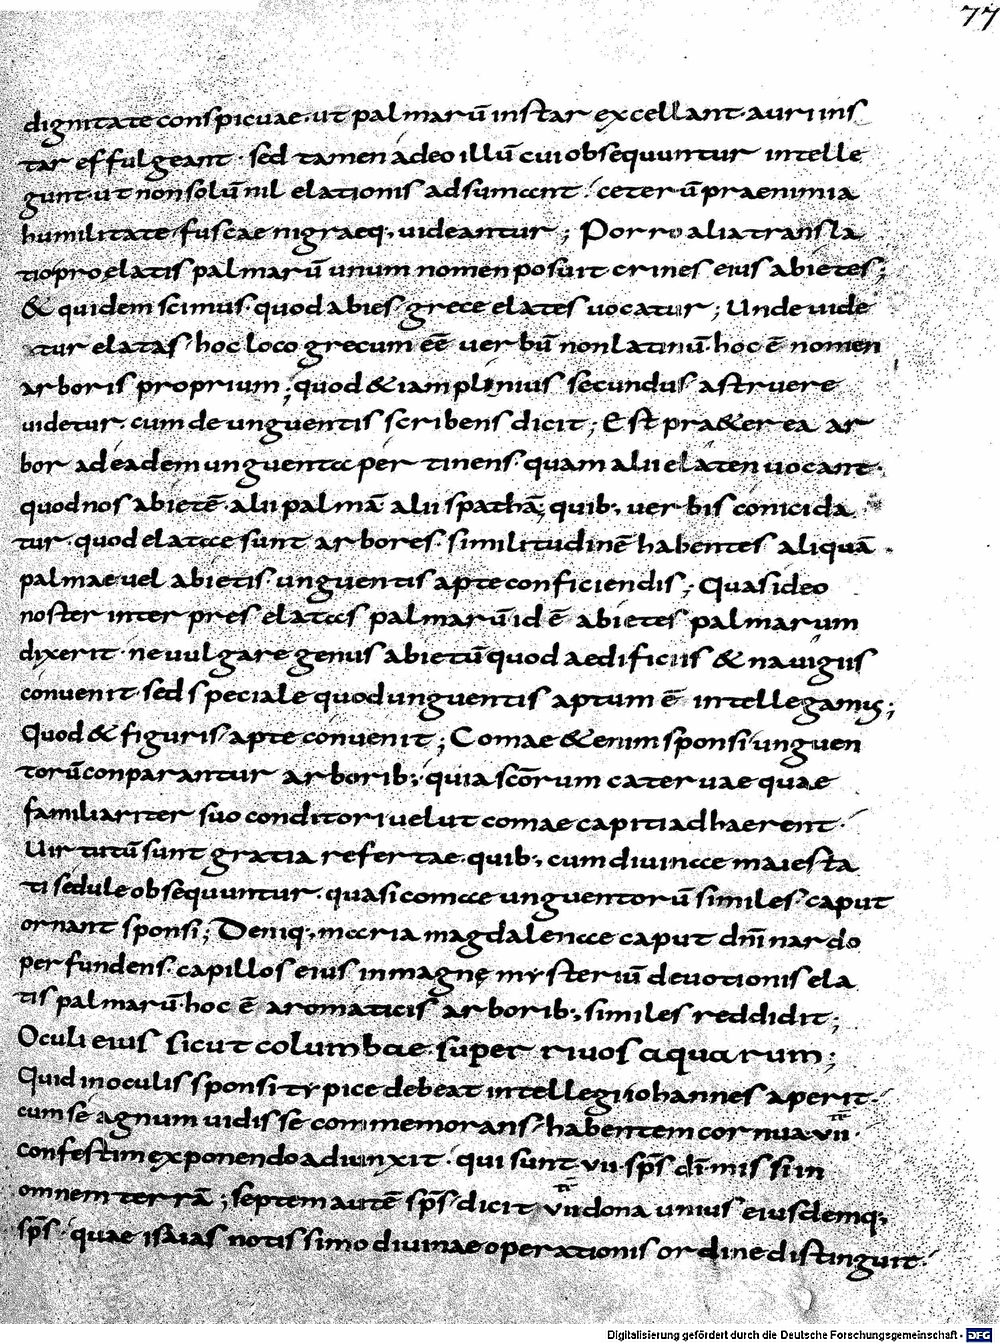 77
dignitate conspicuae. ut palmarū instar excellant. auri ins
tar effulgeant. sed tamen adeo illū cui obsequuntur intelle
gunt. ut non solū nil elationis adsumant. ceterū praenimia
humilitate fuscae nigraeq; videantur; Porro alia transla
tio pro elatis palmarū unum nomen posuit crines eius abietes;
& quidem scimus. quod abies grece elates vocatur; Unde vide
tur elatas hoc loco grecum eē verbū non latinū. hoc ē nomen
arboris proprium; quod & iam plinius secundus astruere
videtur. cum de unguentis scribens dicit; Est pra&er ea ar
bor ad eadem unguenta pertinens. quam alii elaten vocant.
quod nos abietē. alii palmā alii spathā; quib; verbis conicida
tur. quod elatae sunt arbores. similitudinē habentes aliquā
palmae vel abietis. unguentis apte conficiendis; Quas ideo
noster interpres elatas palmarū id ē abietes palmarum
dixerit. ne vulgare genus abietū quod aedificiis & navigiis
convenit. sed speciale quod unguentis aptum ē intellegamus;
Quod & figuris apte convenit; Comae &enim sponsi unguen
torū conparantur arborib; quia scōrum catervae quae
familiariter suo conditori velut comae capiti adhaerent.
Virtutū sunt gratia refertae. quib; cum divinae maiesta
ti sedule obsequuntur. quasi comae unguentorū similes caput
ornant sponsi; Deniq; maria magdalenae caput dn̄i nardo
perfundens. capillos eius in magnę mysteriū devotionis ela
tis palmarū. hoc ē aromaticis arborib; similes reddidit;
Oculi eius sicut columbae. super rivos aquarum;
Quid in oculis sponsi typice debeat intellegi iohannes aperit.
cum se agnum vidisse commemorans habentem cornua vii.
confestim exponendo adiunxit. qui sunt. vii. sp̄s dī missi in
omnem terrā; septem autē sp̄s dicit vii dona unius eiusdemq;
sp̄s. quae isaias notissimo divinae operationis ordine distinguit.
Digitalisierung gefördert durch die Deutsche Forschungsgemeinschaft - DFG